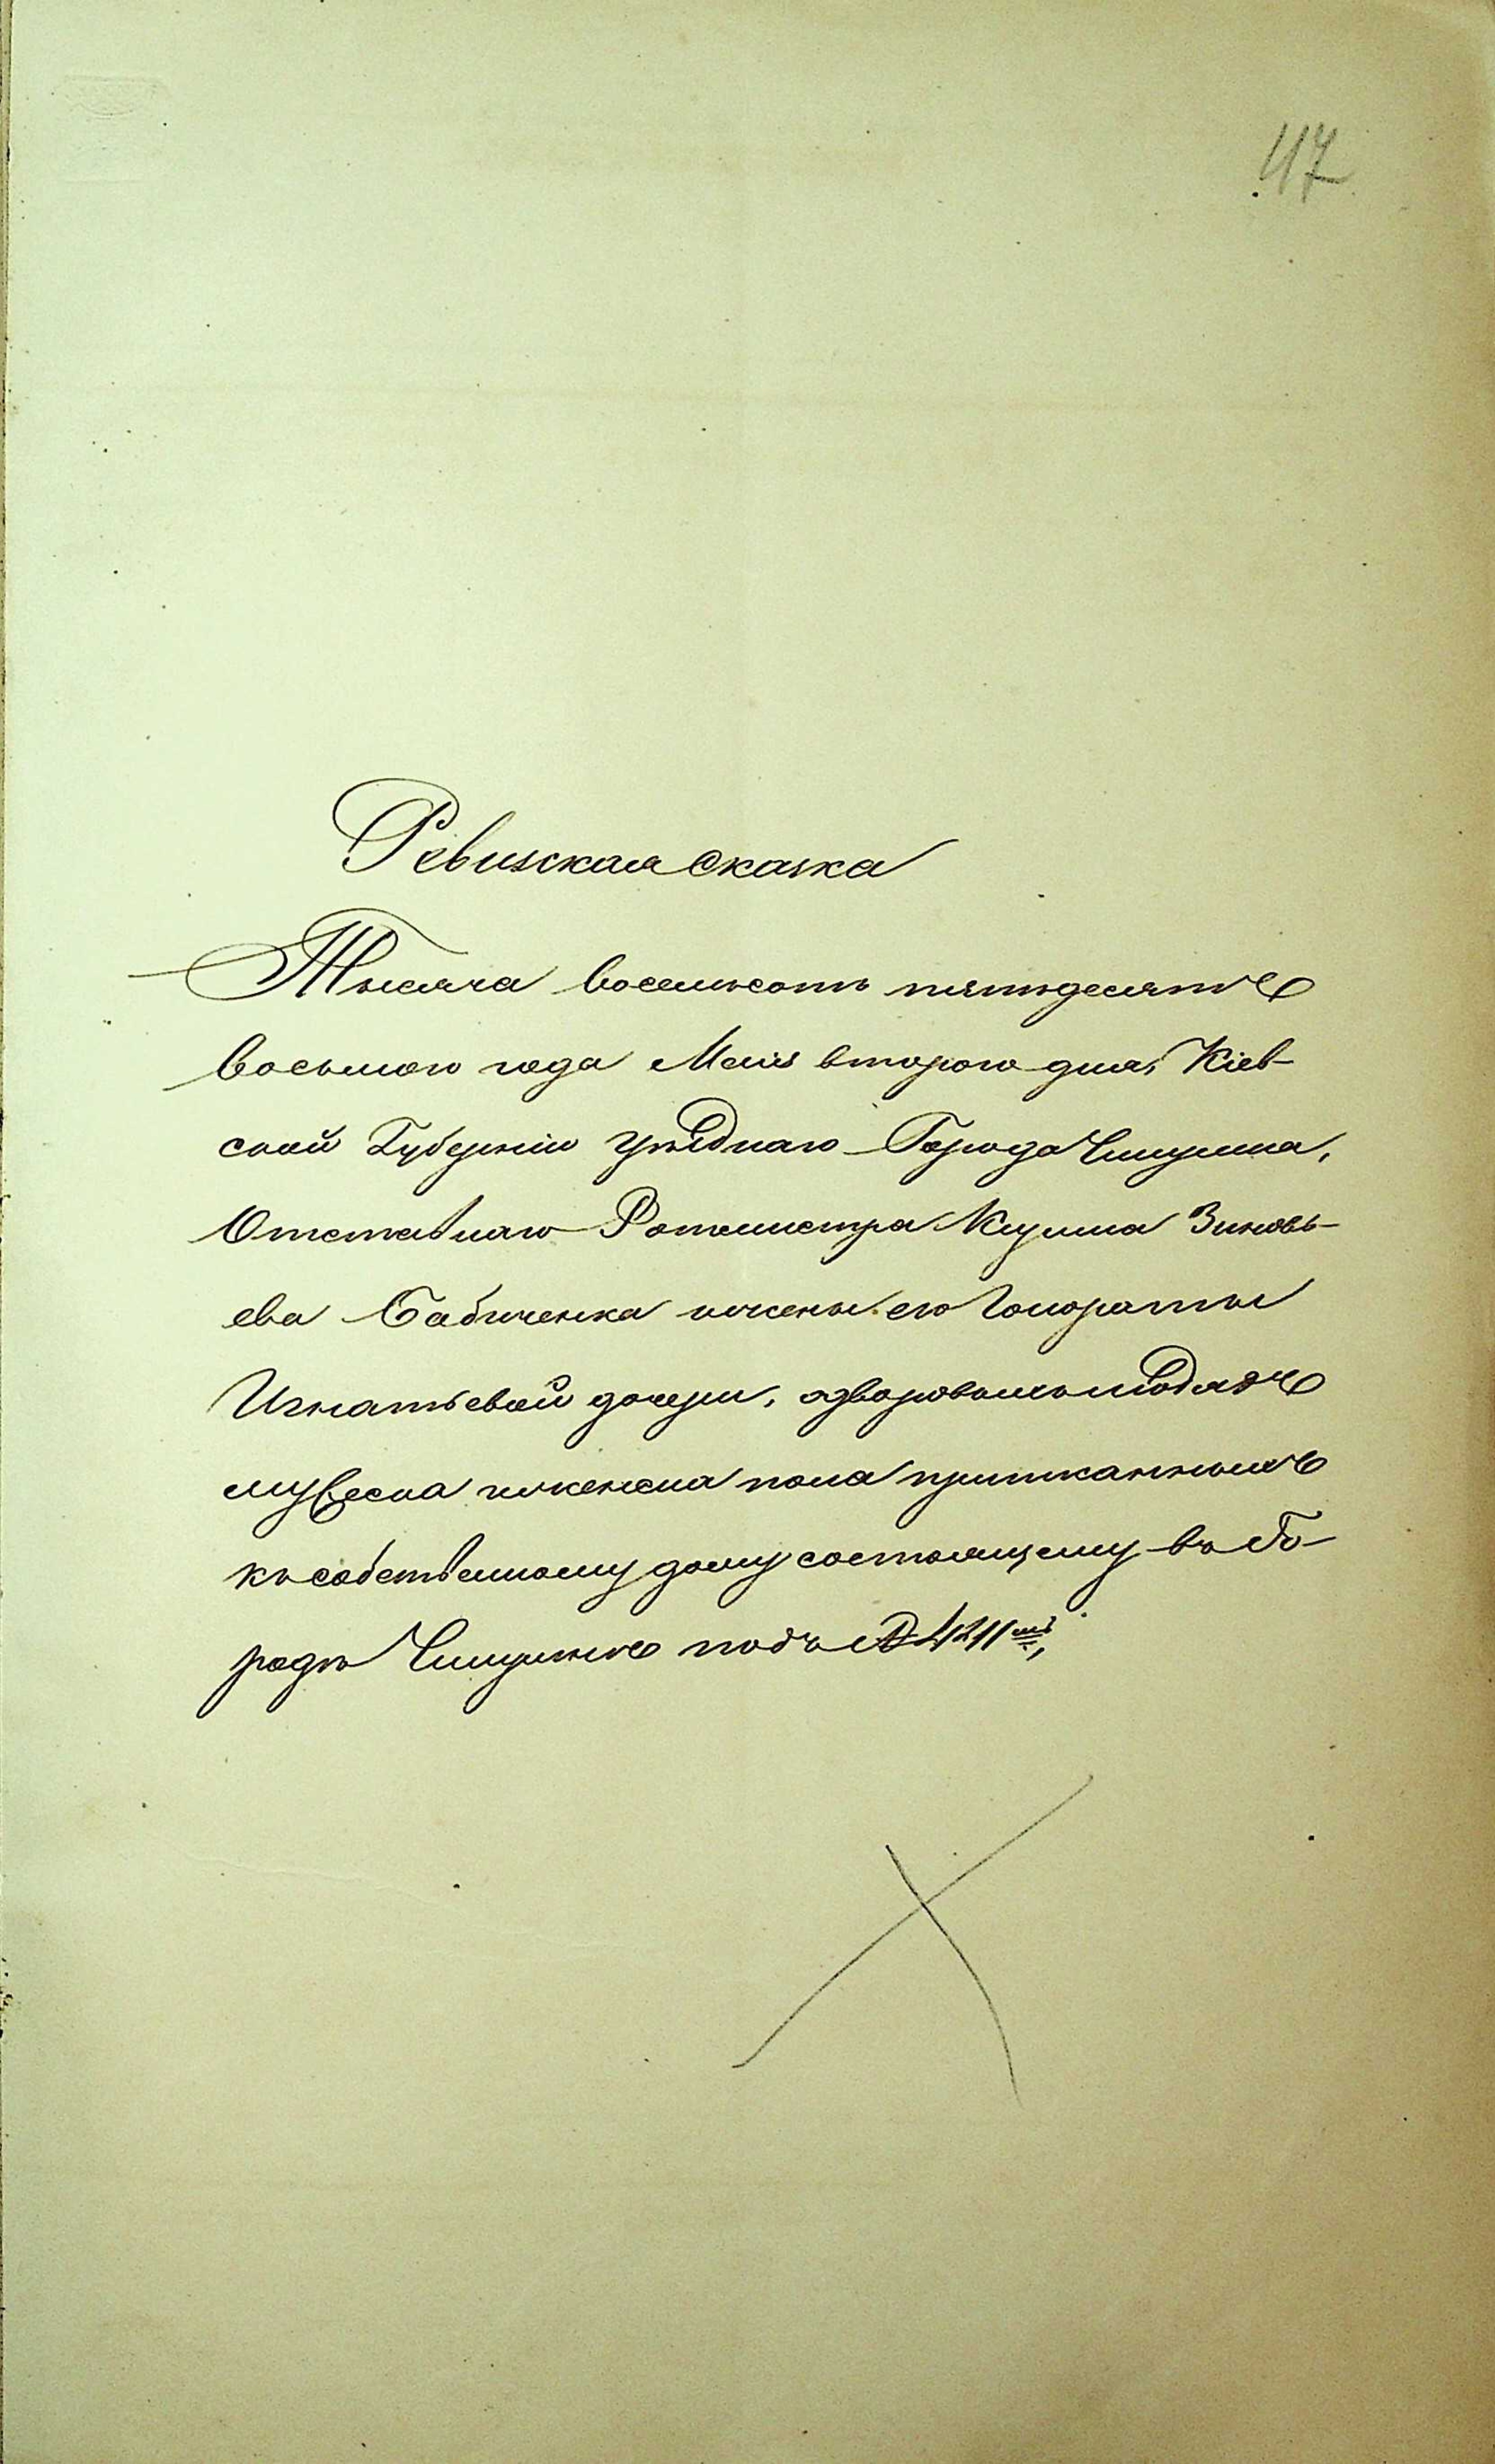 47
Ревизская сказка
Тысяча восемьсотъ пятьдесятъ
восьмого года Маія второго дня, Кіев-
ской Губерніи уѣзднаго Города Чигирина,
Отставнаго Ротмистра Зиновь-
ева Бабиченка и жены его Гонораты
Игнатьевой дочери, о дворовыхъ людяхъ
мужеска и женска пола приписанныхъ
къ собственному дому состоящему въ Го-
родѣ Чигиринѣ подъ №